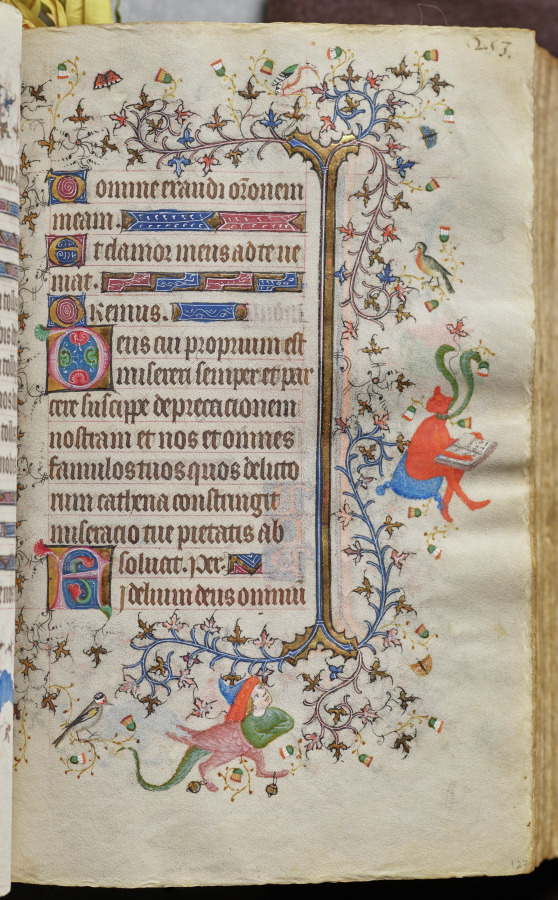 253.
Domine exaudi orõnem
meam.
Et clamor meus ad te ve
niat.
Oremus.
Deus cui proprium est
misereri semper et par
cere suscipe deprecacionem
nostram et nos et omnes
famulos tuos quos delicto
rum cathena constringit
miseracio tue pietatis ab
soluat. Per.
Fidelium deus omniu